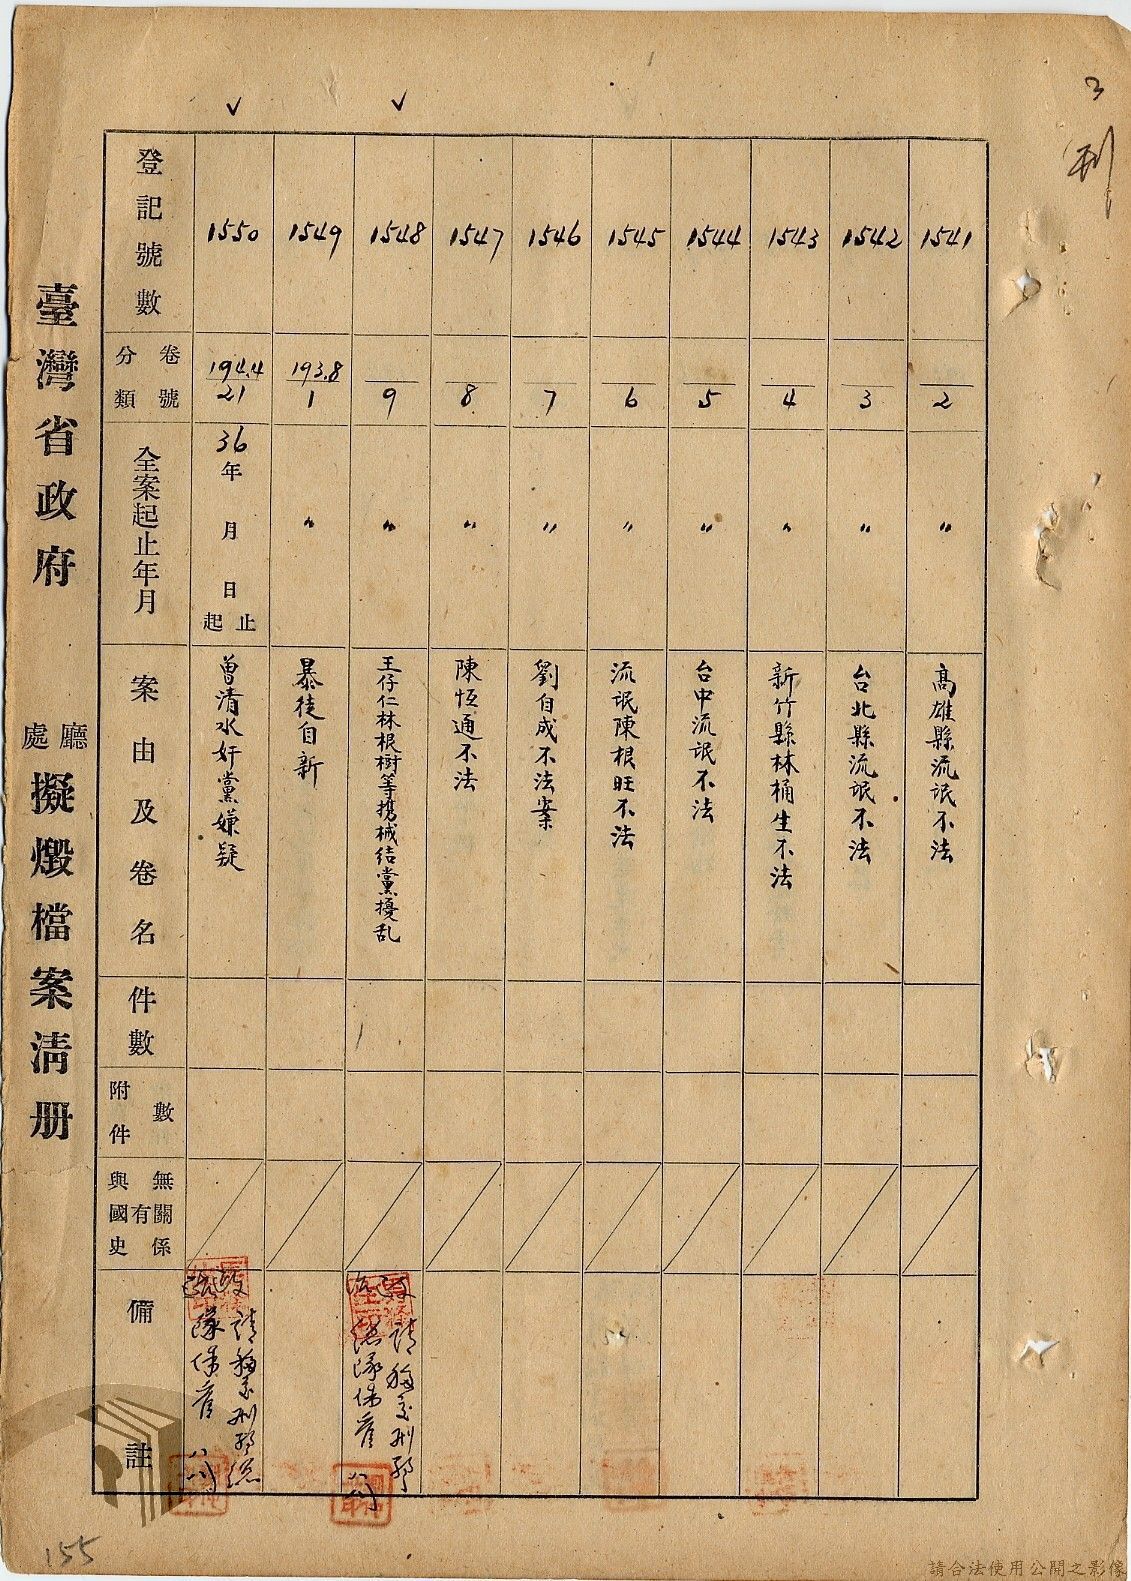 3
刑
臺灣省政府 廳處 擬燬檔案清册
登記號數
卷號
分類
全案起止年月
案由及卷名
件數
附件數
與國史有無關係
備註
1541
2
〃
高雄縣流氓不法
1542
3
〃
台北縣流氓不法
1543
4
〃
新竹縣林桶生不法
1544
5
〃
台中流氓不法
1545
6
〃
流氓陳根旺不法
1546
7
〃
劉自成不法案
1547
8
〃
陳恆通不法
1548
9
〃
王仔仁林根樹等携械結黨擾乱
1549
193.8
1
〃
暴徒自新
1550
194.4
21
36年 月 日 起止
曾清水奸黨嫌疑
155
請合法使用公開之影像